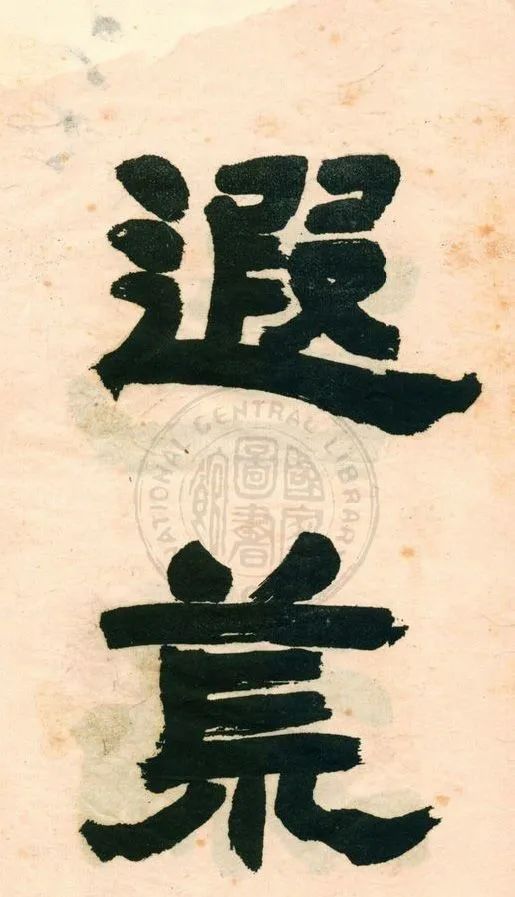 遐
荒
NATIONAL CENTRAL LIBRARY
國家
圖書
館